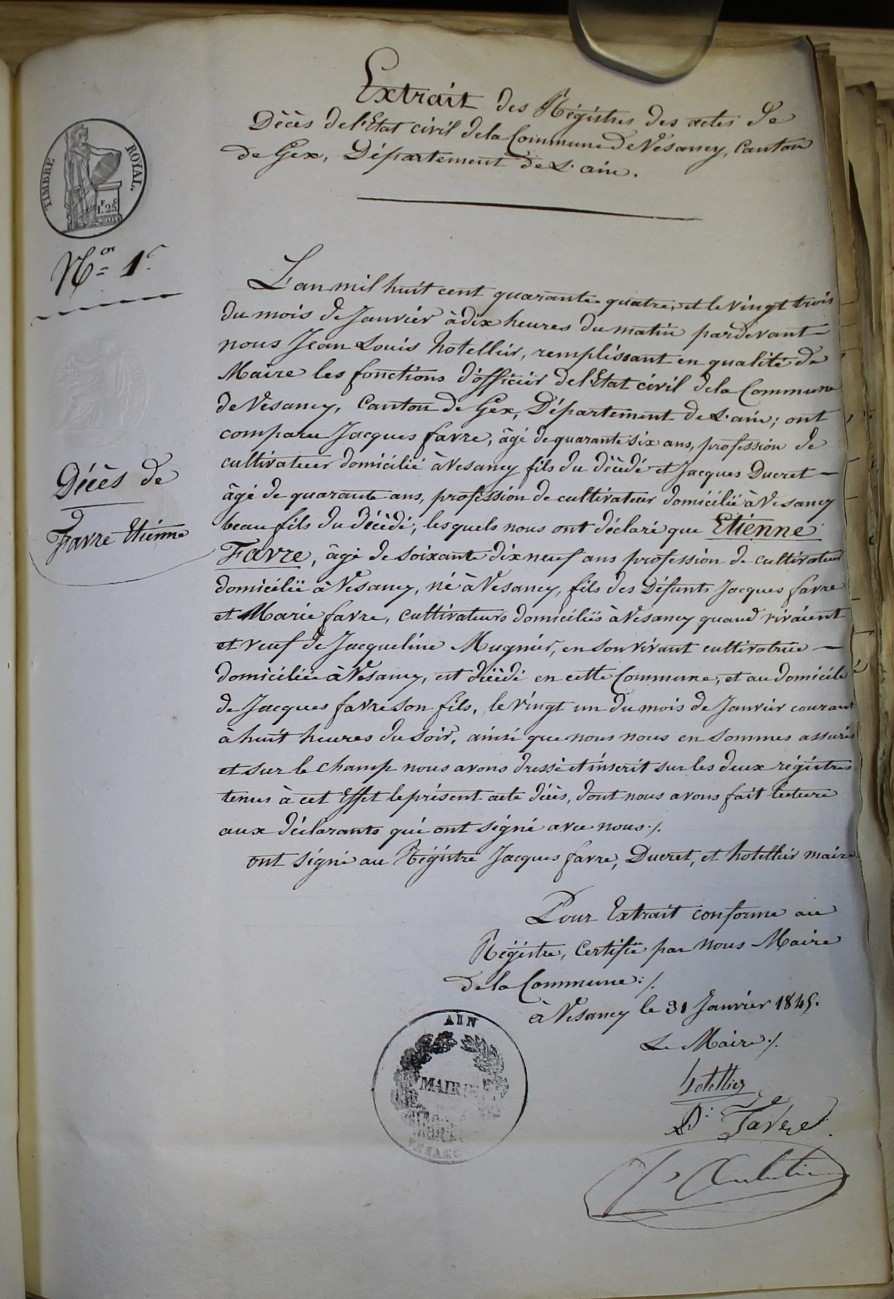 Extrait des Régistres des actes de
Décès de l'Etat civil de la Commune de Vesancy, Canton
de Gex, Département de L'ain.
TIMBRE ROYAL.
1.25
N.on 1.r
L'an mil huit cent quarante quatre, et le vingt trois
du mois de Janvier à dix heures du matin pardevant
nous Jean Louis hotellier, remplissant en qualité de
Maire les fonctions d'officier de l'Etat civil de la Commune
de Vesancy, Canton de Gex, Département de L'ain; ont
comparu Jacques favre, âgé de quarante six ans, profession de
cultivateur domicilié à Vesancy fils du décédé et Jacques Ducret —
Décès de
Favre Etienne
âgé de quarante ans, profession de cultivateur domicilié à Vesancy
beau fils du décédé, les quels nous ont déclaré que Etienne
Favre, âgé de soixante dix neuf ans profession de cultivateur
domicilié à Vesancy, né à Vesancy, fils des défunts Jacques favre
et Marie favre, cultivateurs domiciliés à Vesancy quand vivaient
et veuf de Jacqueline Mugnier, en son vivant cultivatrice —
domiciliée à Vesancy, est décédé en cette Commune, et au domicile
de Jacques favre son fils, le vingt un du mois de Janvier courant
à huit heures du soir, ainsi que nous nous en sommes assurés
et sur le champ nous avons dressé et inscrit sur les deux régistres
tenus à cet Effet le présent acte décès, dont nous avons fait lecture
aux déclarants qui ont signé avec nous ./.
ont signé au Régistre Jacques favre, Ducret, et hotellier maire
Pour Extrait conforme au
Régistre, Certifié par nous Maire
de la Commune ./.
à Vesancy le 31 Janvier 1845.
Le Maire ./.
hotellier
AIN
MAIRIE